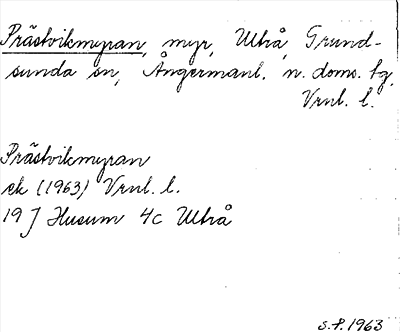 Prästvikmyran, myr, Utrå, Grund-
sunda sn, Ångermanl. n. doms. bg,
Vrnl. l.
Prästvikmyran
ek (1963) Vrnl. l.
19 J Husum 4c Utrå
S.F. 1963